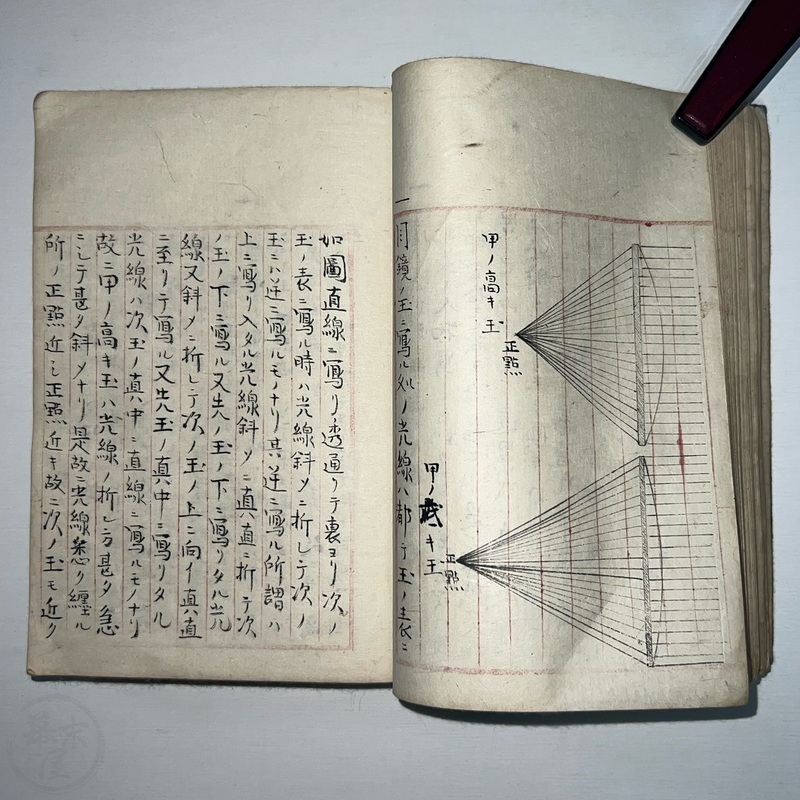 甲ノ高キ玉
正點
甲ノ
キ玉
正點
一目鏡ノ玉ニ寫ル処ノ光線ハ都テ玉ノ表ニ
如圖直線ニ寫リ透通リテ裏ヨリ次ノ
玉ノ表ニ寫ル時ハ光線斜メニ折レテ次ノ
玉ニハ逆ニ寫ルモノナリ其逆ニ寫ル所謂ハ
上ニ寫リ入タル光線斜メニ真直ニ折テ次
ノ玉ノ下ニ寫ル又先ノ玉ノ下ニ寫リタル光
線又斜メニ折レテ次ノ玉ノ上ニ向イ真直
ニ至リテ寫ル又先玉ノ真中ニ寫リタル
光線ハ次玉ノ真中ニ直線ニ寫ルモノナリ
故ニ甲ノ高キ玉ハ光線ノ折レ方甚タ急
ニシテ甚タ斜メナリ是故ニ光線悉ク纏ル
所ノ正點近シ正點近キ故ニ次ノ玉モ近ク